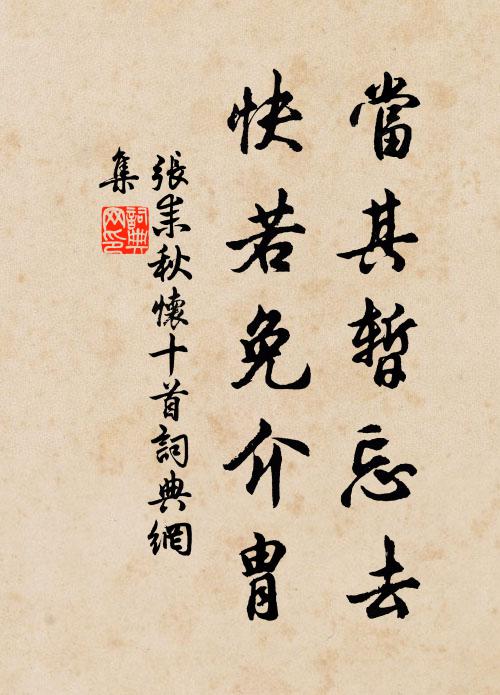 當其暫忘去
快若免介胄
張耒秋懷十首詞典網
集
詞典網印